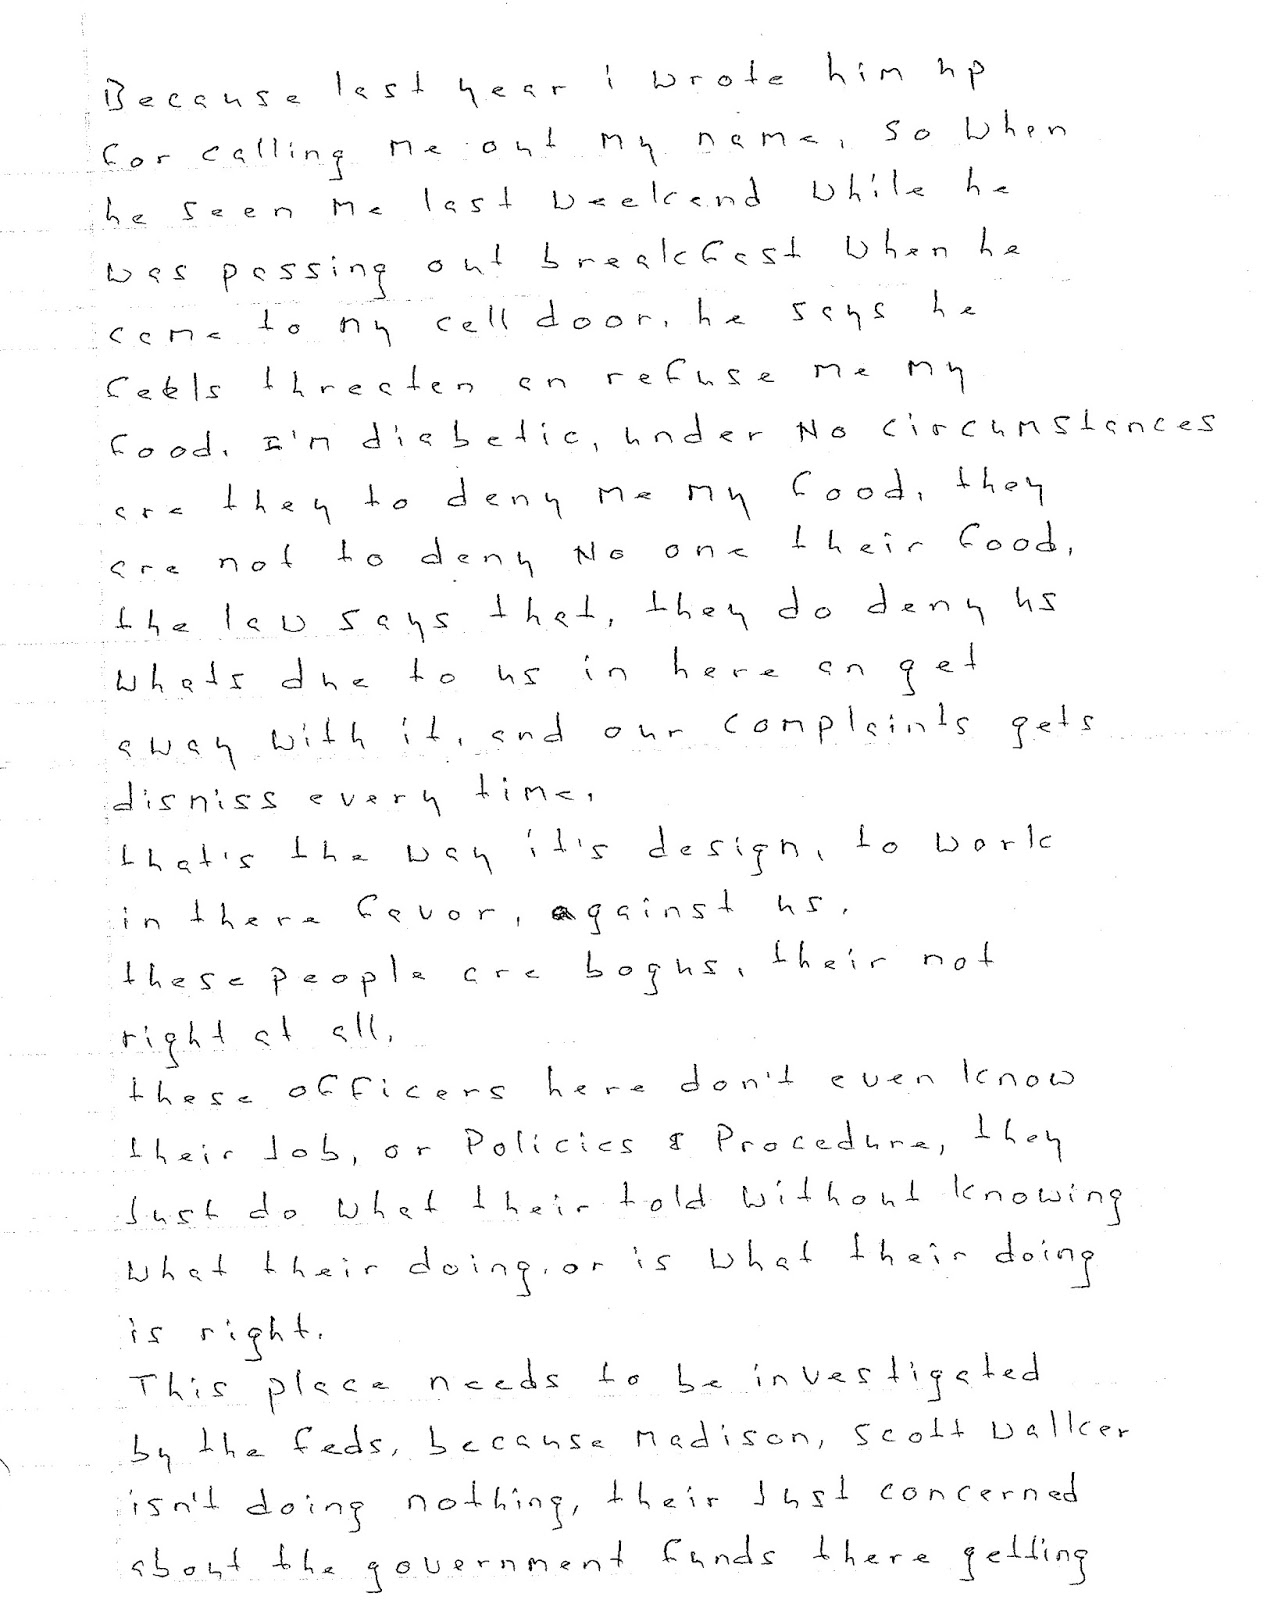 Because last year i wrote him up
for calling me out my name, so when
he seen me last weekend while he
was passing out breakfast when he
came to my cell door, he says he
feels threaten an refuse me my
food. I'm diabetic, under No circumstances
are they to deny me my food, they
are not to deny No one their food,
the law says that, they do deny us
whats due to us in here an get
away with it, and our complaints gets
dismiss every time,
that's the way it's design, to work
in there favor, against us.
these people are bogus, their not
right at all,
these officers here don't even know
their Job, or Policies & Procedure, they
Just do what their told without knowing
what their doing, or is what their doing
is right.
This place needs to be investigated
by the feds, because Madison, Scott Walker
isn't doing nothing, their Just concerned
about the government funds there getting